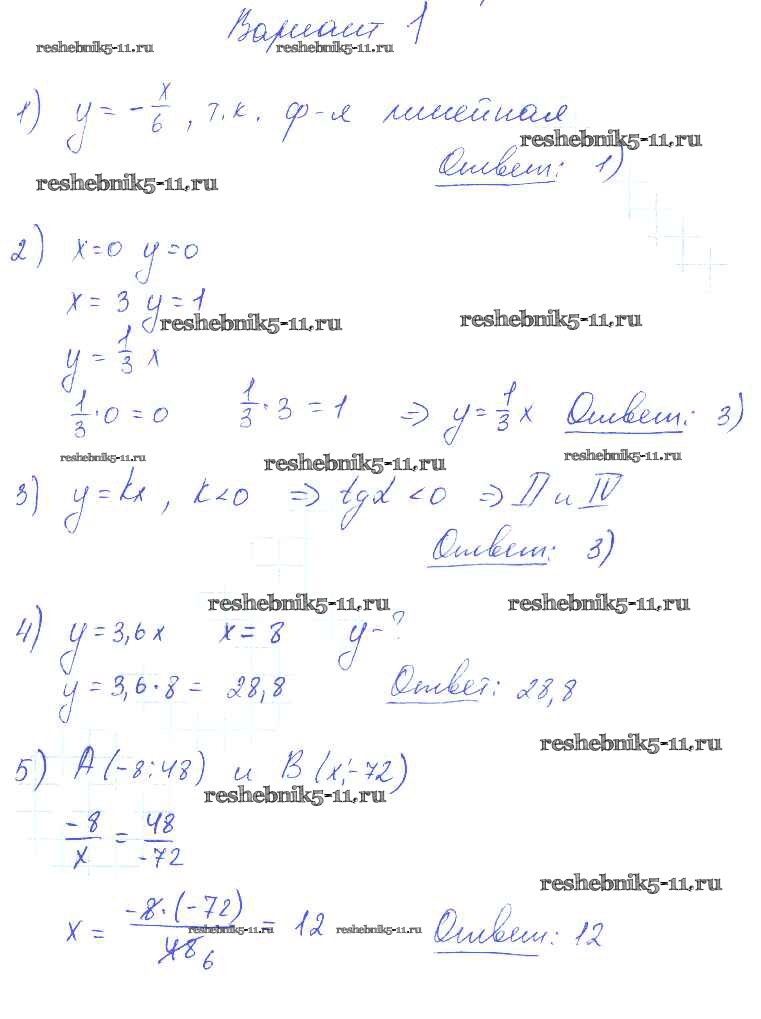 Вариант 1
reshebnik5-11.ru reshebnik5-11.ru
1) y = -x/6, т.к. ф-я линейная
reshebnik5-11.ru
Ответ: 1)
reshebnik5-11.ru
2) x=0 y=0
x = 3 y = 1
reshebnik5-11.ru reshebnik5-11.ru
y = 1/3 x
1/3 · 0 = 0 1/3 · 3 = 1 => y = 1/3 x Ответ: 3)
reshebnik5-11.ru reshebnik5-11.ru reshebnik5-11.ru
3) y = kx, k<0 => tgα < 0 => II и IV
Ответ: 3)
reshebnik5-11.ru reshebnik5-11.ru
4) y = 3,6x x = 8 y - ?
y = 3,6 · 8 = 28,8 Ответ: 28,8
reshebnik5-11.ru
5) A (-8; 48) и B (x; -72)
reshebnik5-11.ru
-8/x = 48/-72
reshebnik5-11.ru
x = -8 · (-72)/48 6 = 12 Ответ: 12
reshebnik5-11.ru reshebnik5-11.ru